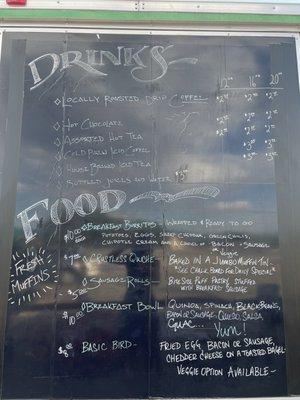 DRINKS
12oz 16oz 20oz
Locally Roasted Drip Coffee
Hot Chocolate
Assorted Hot Tea
Cold Brew Iced Coffee
House Brewed Iced Tea
Bottled Juices and Water
FOOD
Breakfast Burritos - Wrapped & Ready to go
Potatoes, Eggs, Sharp Cheddar, Green Chilis,
Chipotle Cream and a choice of Bacon - Sausage
or Veggie
Fresh Muffins
Crustless Quiche - Baked in a Jumbo Muffin Tin -
"See Chalk Board for Daily Special"
Sausage Rolls - Bite Size Puff Pastry, Stuffed
with Breakfast Sausage
$10.00 Breakfast Bowl Quinoa, Spinach, Black Beans,
Bacon or Sausage, Queso, Salsa,
Guac... Yum!
Basic Bird - Fried Egg, Bacon or Sausage,
Chedder Cheese on a Toasted Bagel
Veggie Option Available -